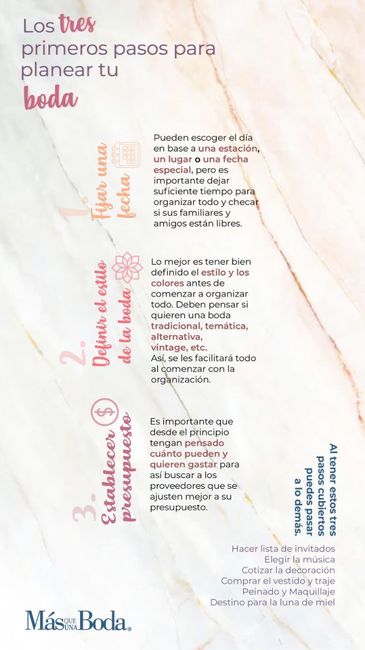 Los tres
primeros pasos para
planear tu
boda
1.
Fijar una
fecha
Pueden escoger el día
en base a una estación,
un lugar o una fecha
especial, pero es
importante dejar
suficiente tiempo para
organizar todo y checar
si sus familiares y
amigos están libres.
2.
Definir el estilo
de la boda
Lo mejor es tener bien
definido el estilo y los
colores antes de
comenzar a organizar
todo. Deben pensar si
quieren una boda
tradicional, temática,
alternativa,
vintage, etc.
Así, se les facilitará todo
al comenzar con la
organización.
3.
Establecer
presupuesto
$
Es importante que
desde el principio
tengan pensado
cuánto pueden y
quieren gastar para
así buscar a los
proveedores que se
ajusten mejor a su
presupuesto.
Al tener estos tres
pasos cubiertos
puedes pasar
a lo demás.
Hacer lista de invitados
Elegir la música
Cotizar la decoración
Comprar el vestido y traje
Peinado y Maquillaje
Destino para la luna de miel
Más QUE UNA Boda®